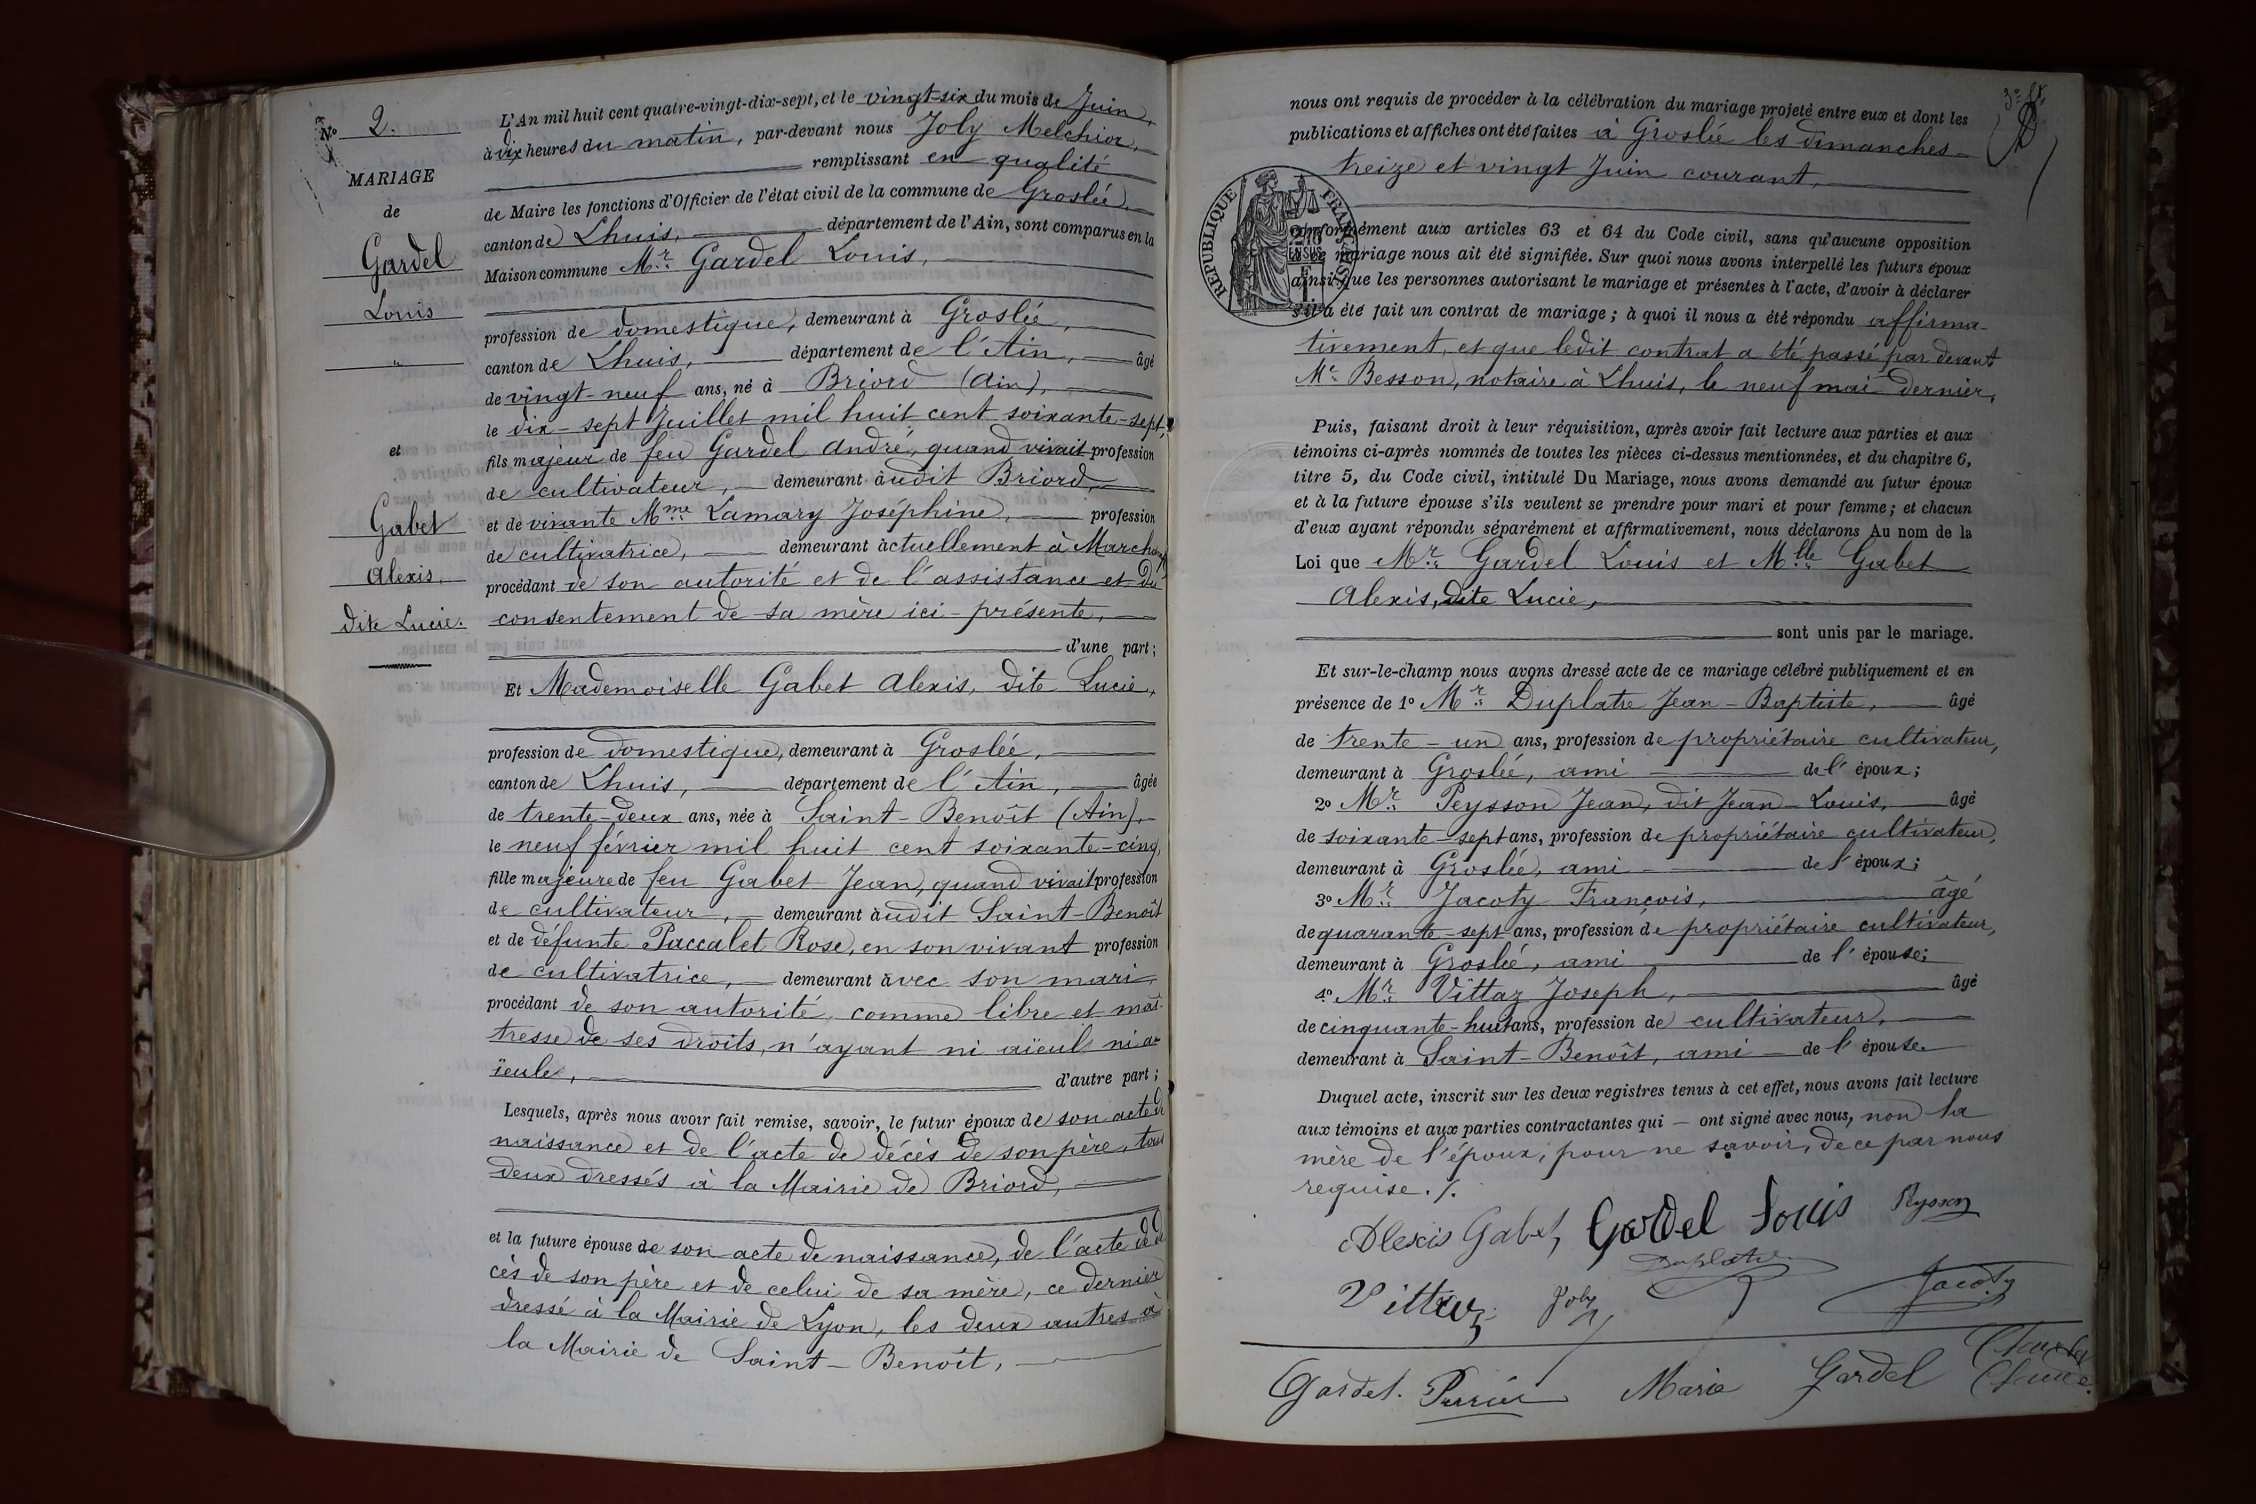 N° 2.
MARIAGE
de
Gardel
Louis
"
et
Gabet
Alexis,
dite Lucie.
L'An mil huit cent quatre-vingt-dix-sept, et le vingt-six du mois de Juin,
à dix heures du matin, par-devant nous Joly Melchior,
remplissant en qualité
de Maire les fonctions d'Officier de l'état civil de la commune de Groslée,
canton de Lhuis, département de l'Ain, sont comparus en la
Maison commune Mr Gardel Louis,
profession de domestique, demeurant à Groslée,
canton de Lhuis, département de l'Ain, âgé
de vingt-neuf ans, né à Briord (Ain),
le dix-sept Juillet mil huit cent soixante-sept,
fils majeur de feu Gardel André, quand vivait profession
de cultivateur, demeurant audit Briord,
et de vivante Mme Lamary Joséphine, profession
de cultivatrice, demeurant actuellement à
procédant de son autorité et de l'assistance et du
consentement de sa mère ici-présente,
d'une part;
Et Mademoiselle Gabet Alexis, dite Lucie,
profession de domestique, demeurant à Groslée,
canton de Lhuis, département de l'Ain, âgée
de trente-deux ans, née à Saint-Benoît (Ain),
le neuf février mil huit cent soixante-cinq,
fille majeure de feu Gabet Jean, quand vivait profession
de cultivateur, demeurant audit Saint-Benoît
et de défunte Paccalet Rose, en son vivant profession
de cultivatrice, demeurant avec son mari,
procédant de son autorité, comme libre et maî-
tresse de ses droits, n'ayant ni aïeul ni a-
ïeule, d'autre part;
Lesquels, après nous avoir fait remise, savoir, le futur époux de son acte de
naissance et de l'acte de décès de son père, tous
deux dressés à la Mairie de Briord,
et la future épouse de son acte de naissance, de l'acte de dé
cès de son père et de celui de sa mère, ce dernier
dressé à la Mairie de Lyon, les deux autres à
la Mairie de Saint-Benoît,
nous ont requis de procéder à la célébration du mariage projeté entre eux et dont les
publications et affiches ont été faites à Groslée les dimanches
treize et vingt Juin courant,
REPUBLIQUE FRANÇAISE
conformément aux articles 63 et 64 du Code civil, sans qu'aucune opposition
à ce mariage nous ait été signifiée. Sur quoi nous avons interpellé les futurs époux
ainsi que les personnes autorisant le mariage et présentes à l'acte, d'avoir à déclarer
s'il a été fait un contrat de mariage; à quoi il nous a été répondu affirma-
tivement, et que ledit contrat a été passé par devant
Me Besson, notaire à Lhuis, le neuf mai dernier,
Puis, faisant droit à leur réquisition, après avoir fait lecture aux parties et aux
témoins ci-après nommés de toutes les pièces ci-dessus mentionnées, et du chapitre 6,
titre 5, du Code civil, intitulé Du Mariage, nous avons demandé au futur époux
et à la future épouse s'ils veulent se prendre pour mari et pour femme; et chacun
d'eux ayant répondu séparément et affirmativement, nous déclarons Au nom de la
Loi que Mr Gardel Louis et Mlle Gabet
Alexis, dite Lucie,
sont unis par le mariage.
Et sur-le-champ nous avons dressé acte de ce mariage célébré publiquement et en
présence de 1° Mr Duplatre Jean-Baptiste, âgé
de trente-un ans, profession de propriétaire cultivateur,
demeurant à Groslée, ami de l'époux;
2° Mr Peysson Jean, dit Jean-Louis, âgé
de soixante-sept ans, profession de propriétaire cultivateur,
demeurant à Groslée, ami de l'époux;
3° Mr Jacoty François, âgé
de quarante-sept ans, profession de propriétaire cultivateur,
demeurant à Groslée, ami de l'épouse;
4° Mr Vittaz Joseph, âgé
de cinquante-huit ans, profession de cultivateur,
demeurant à Saint-Benoît, ami de l'épouse.
Duquel acte, inscrit sur les deux registres tenus à cet effet, nous avons fait lecture
aux témoins et aux parties contractantes qui ont signé avec nous, non la
mère de l'époux, pour ne savoir, de ce par nous
requise./.
Alexis Gabet, Gardel Louis Peysson
Duplatre
Vittaz Joly Jacoty
Gardel. Perrier Marie Gardel Claude